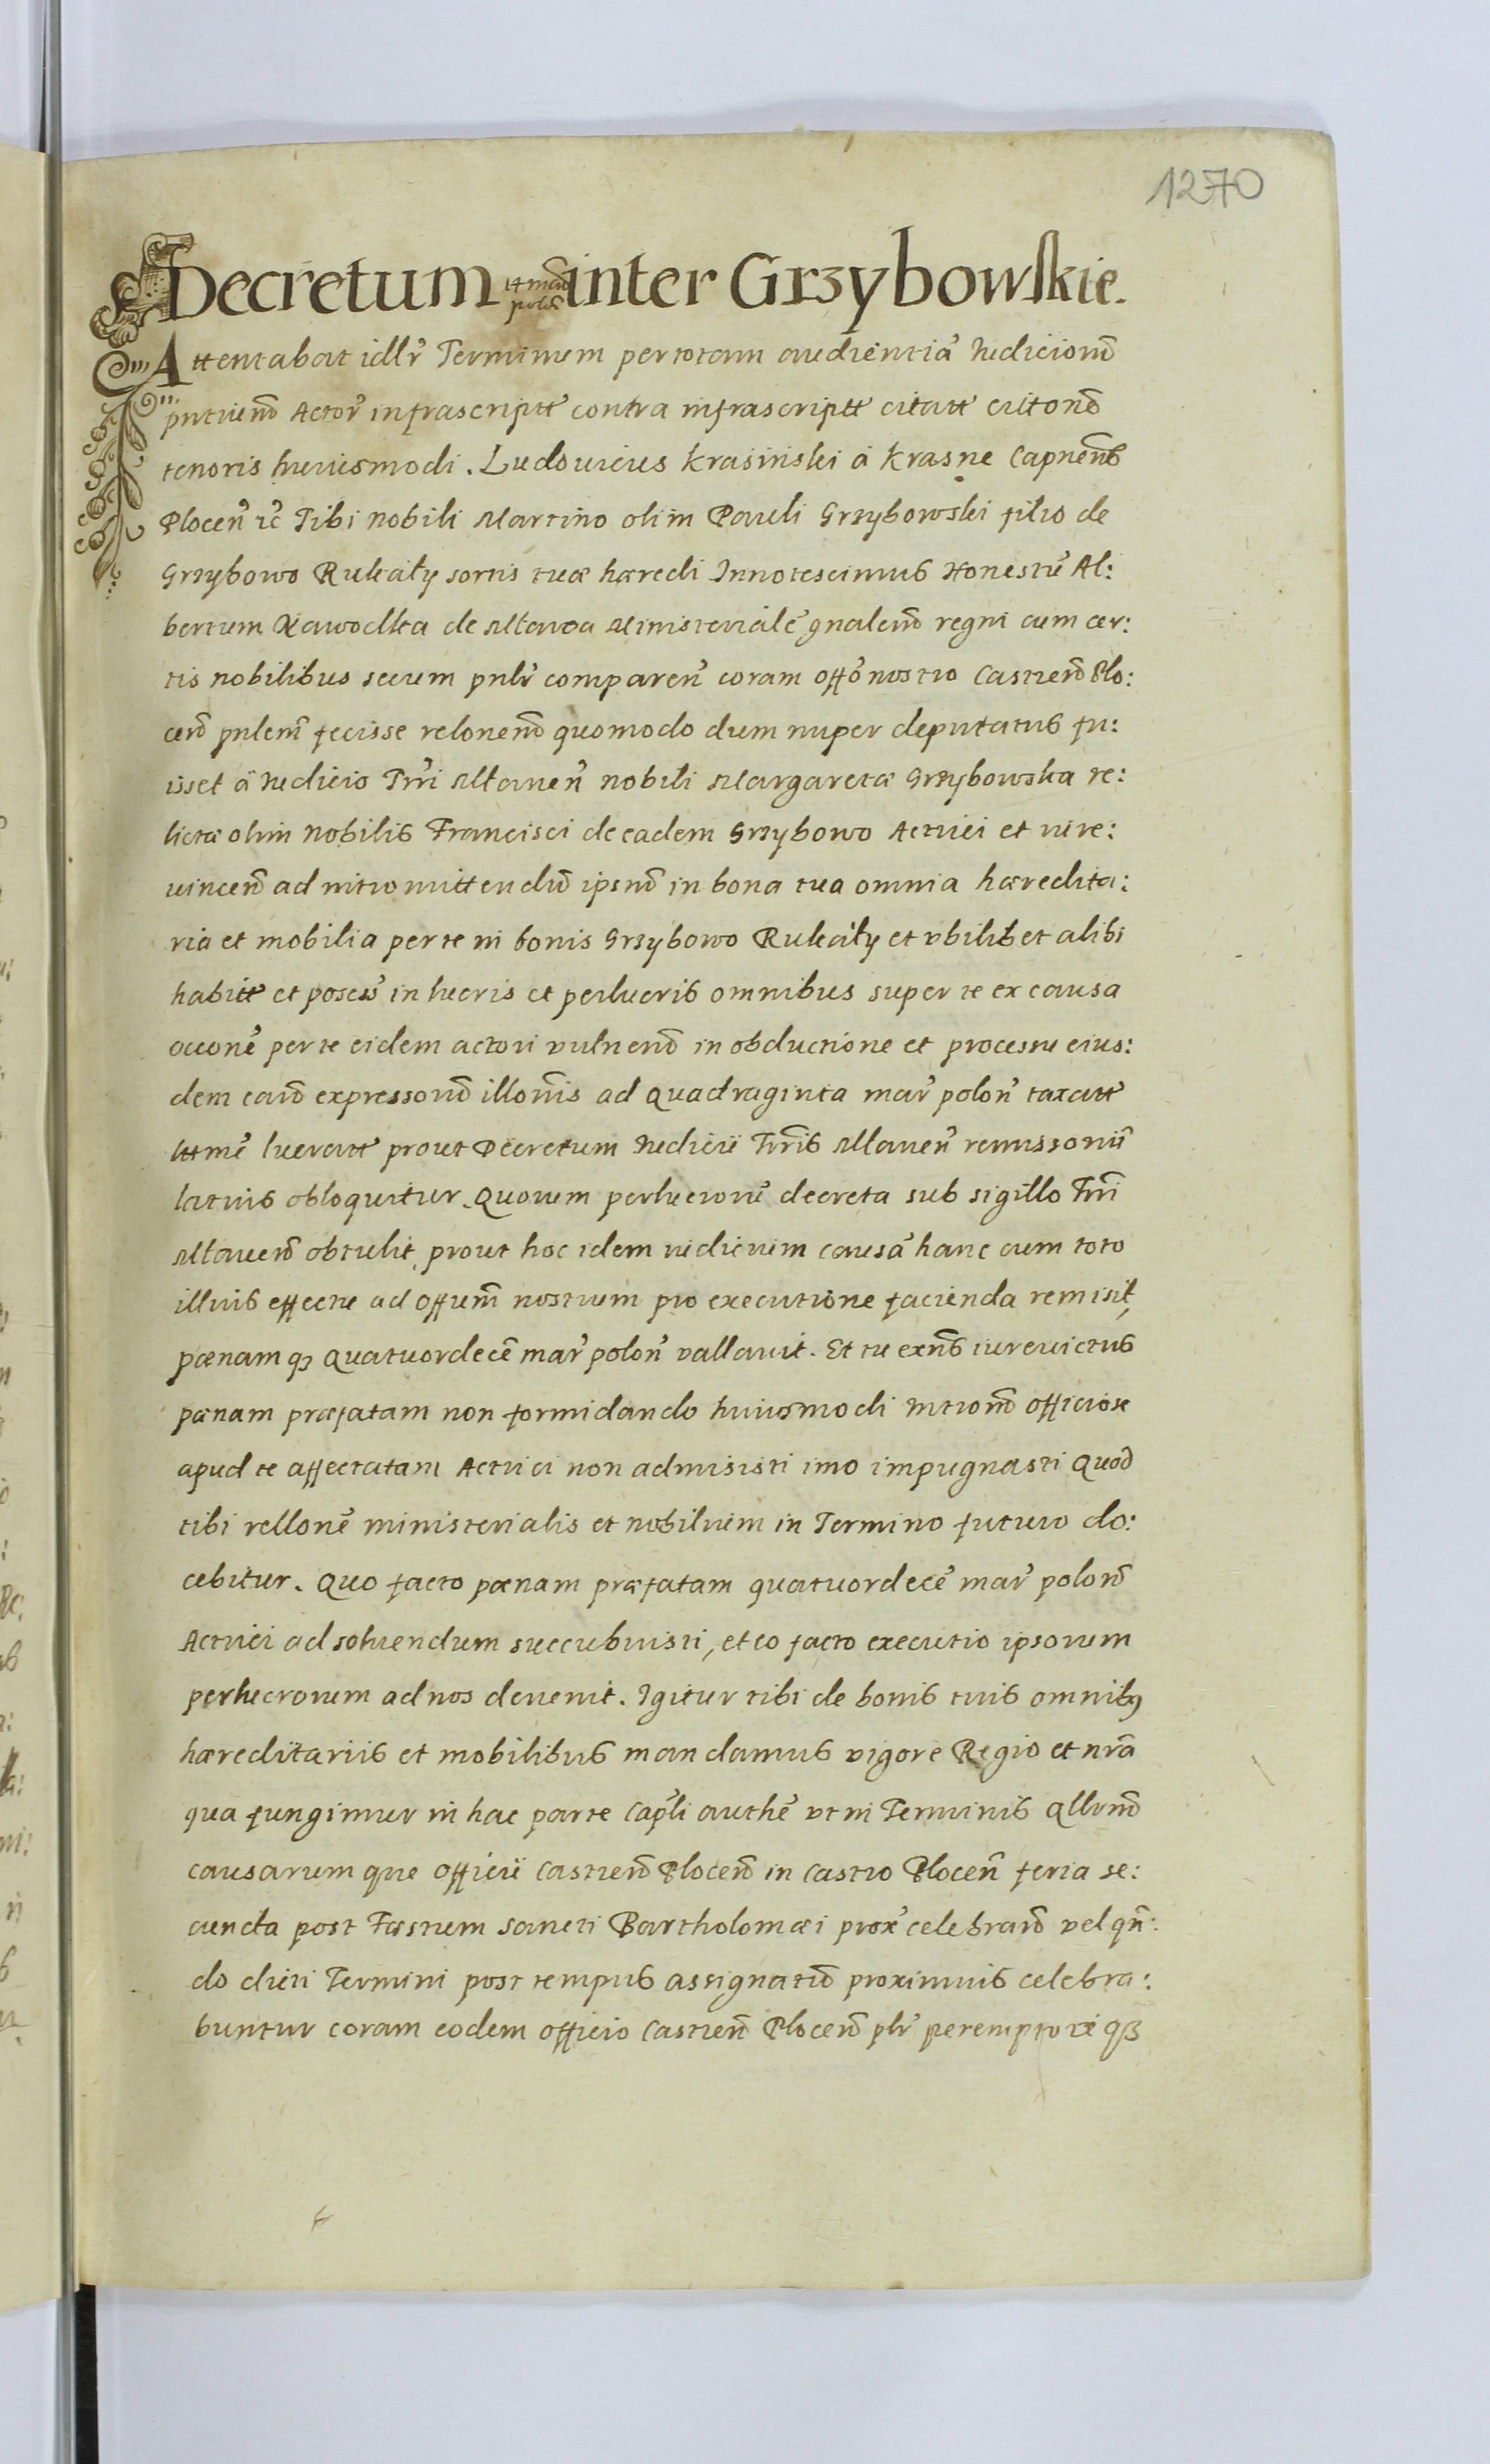 1270
Decretum 14 mar̃ polõ inter Grzybowskie.
Attentabat idlr̃ Terminum per totam audientiã Iudiciorũ
pntiũ Actor̃ infrascriptt contra infrascriptt citatt citonẽ
tenoris huiusmodi. Ludouicus Krasiński á Krasne Capnẽus
Plocen̄ ic̃ Tibi nobili Martino olim Pauli Grzybowski filio de
Grzybowo Rukały sortis tuæ hæredi Innotescimus Honestũ Al:
bertum Zawodka de Mława Ministerialẽ gnalem̃ regni cum cer:
tis nobilibus secum pnlr̃ comparen̄ coram offõ nostro Castren̄ Plo:
cen̄ pnlem̃ fecisse relonem̃ quomodo dum nuper deputatus fu:
isset á Iudicio Trri Mlauen̄ nobili Margaretæ Grzybowska re:
lictæ olim Nobilis Francisci de eadem Grzybowo Actrici et iure:
uincen̄ ad intromittendũ ipsam̃ in bona tua omnia hæredita:
ria et mobilia per te in bonis Grzybowo Rukały et vbilibet alibi
habitt et posess̃ in lucris et perlucris omnibus super te ex causa
per te eidem actori vulnerũ in obductione et processu eius:
dem causæ expressorũ illonis ad Quadraginta mar̃ polon̄ taxatt
lueratt prout Decretum Iudicii Trris Mlauen̄ remissoriũ
latius obloquitur. Quorum perlucrorũ decreta sub sigillo Trri
Mlauen̄ obtulit, prout hoc idem iudicium causã hanc cum toto
illius effectu ad Offium̃ nostrum pro executione facienda remisit,
pœnam q3 Quatuordecẽ mar̃ polon̄ vallauit. Et tu exñs iureuictus
pœnam præfatam non formidando huiusmodi Intronẽ officiose
apud te affectatam Actrici non admisisti imo impugnasti Quod
tibi rellonẽ ministerialis et nobilium in Termino futuro do:
cebitur. Quo facto pœnam præfatam quatuordecẽ mar̃ polon̄
Actrici ad soluendum succubuisti, et eo facto executio ipsorum
perlucrorum ad nos deuenit. Igitur tibi de bonis tuis omnib9
hæreditariis et mobilibus mandamus vigore Regio et nr̃a
qua fungimur in hac parte Cap̃li authẽ vt in Terminis Qllrũ
causarum que Officii Castren̄ Plocen̄ in Castro Plocen̄ feria se:
cunda post Fæstum Sancti Bartholomæi prox̃ celebran̄ vel qñ:
do dicti Termini post tempus assignatũ proximius celebra:
buntur coram eodem officio Castren̄ Plocen̄ plr̃ peremptorie q3